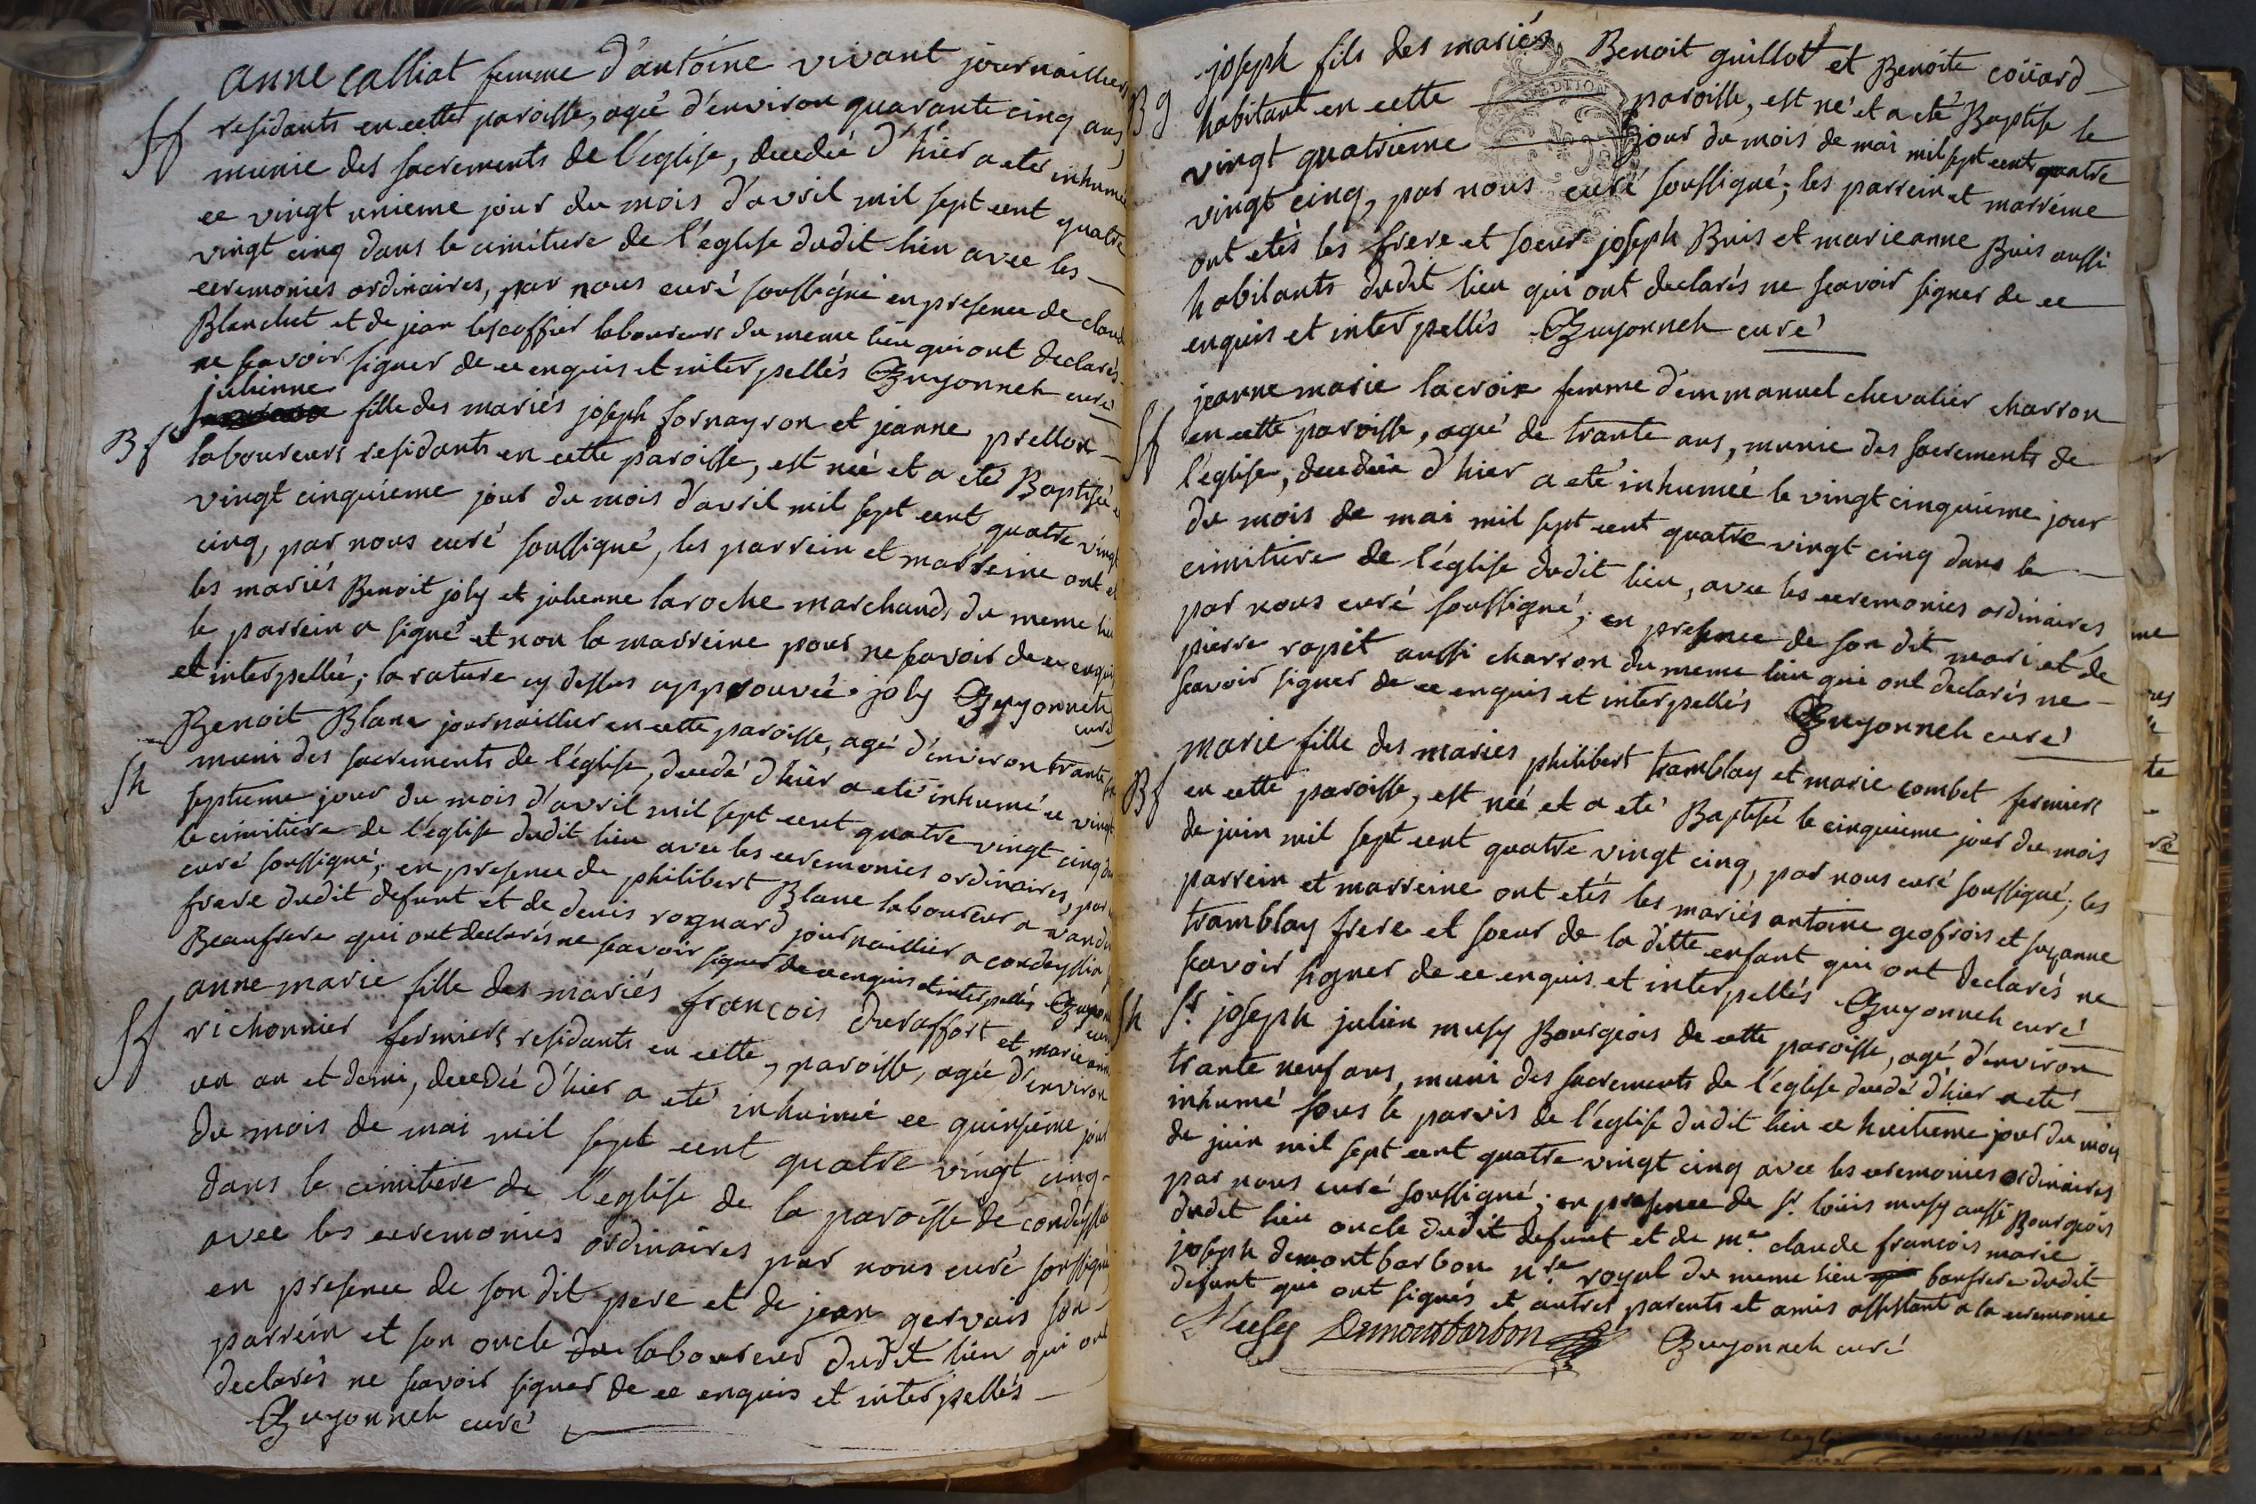 anne calliat femme d'antoine vivant journaillier
Sf
residants en cette paroisse, agée d'environ quarante cinq ans
munie des sacrements de l'église, decedée d'hier a eté inhumée
ce vingt unieme jour du mois d'avril mil sept cent quatre
vingt cinq dans le cimitiere de l'eglise dudit lieu avec les
ceremonies ordinaires, par nous curé soussigné en presence de claude
Blanchet et de jean lescoffier laboureurs du meme lieu qui ont declarés
ne scavoir signer de ce enquis et interpellés Guyonneh curé
julienne
Bf
fille des mariés joseph fornayron et jeanne prellon
laboureurs residants en cette paroisse, est née et a eté Baptisée
vingt cinquieme jour du mois d'avril mil sept cent quatre vingt
cinq, par nous curé soussigné, les parrein et marreine ont
les mariés Benoit joly et julienne laroche marchands du meme lieu
le parrein a signé et non la marreine pour ne scavoir de ce enquise
et interpellée; la rature cy dessus approuvée joly Guyonneh
curé
Benoit Blanc journaillier en cette paroisse, agé d'environ trante
Sh
muni des sacrements de l'église, decedé d'hier a eté inhumé ce vingt
septieme jour du mois d'avril mil sept cent quatre vingt cinq
le cimitiere de l'église dudit lieu avec les ceremonies ordinaires, par
curé soussigné; en presence de philibert Blanc laboureur a
frere dudit defunt et de denis rognard journaillier a condeyssia
Beaufrere qui ont declarés ne scavoir signer de ce enquis et interpellés
curé
anne marie fille des mariés francois duraffort et marie anne
Sf
richonnier fermiers residants en cette paroisse, agée d'environ
un an et demi, decedée d'hier a eté inhumée ce quinzieme jour
du mois de mai mil sept cent quatre vingt cinq
dans le cimitiere de l'eglise de la paroisse de condeyssia
avec les ceremonies ordinaires par nous curé soussigné
en presence de son dit pere et de jean gervais son
parrein et son oncle laboureur dudit lieu qui ont
declarés ne scavoir signer de ce enquis et interpellés
Guyonneh curé
joseph fils des mariés Benoit guillot et Benoite coüard
Bg
habitant en cette paroisse, est né et a eté Baptisé le
vingt quatrieme jour du mois de mai mil sept cent quatre
vingt cinq, par nous curé soussigné; les parrein et marreine
ont etés les frere et soeur joseph Buis et marieanne Buis aussi
habitants dudit lieu qui ont declarés ne scavoir signer de ce
enquis et interpellés Guyonneh curé
jeanne marie lacroix femme d'emmanuel chevalier charron
Sf
en cette paroisse, agée de trante ans, munie des sacrements de
l'église, decedée d'hier a eté inhumée le vingt cinquieme jour
du mois de mai mil sept cent quatre vingt cinq dans le
cimitiere de l'église dudit lieu, avec les ceremonies ordinaires
par nous curé soussigné; en presence de son dit mari et de
pierre ropit aussi charron du meme lieu qui ont declarés ne
scavoir signer de ce enquis et interpellés Guyonneh curé
marie fille des mariés philibert tramblay et marie combet fermiers
Bf
en cette paroisse, est née et a eté Baptisée le cinquieme jour du mois
de juin mil sept cent quatre vingt cinq, par nous curé soussigné; les
parrein et marreine ont etés les mariés antoine geofrois et suzanne
tramblay frere et soeur de la ditte enfant qui ont declarés ne
scavoir signer de ce enquis et interpellés Guyonneh curé
Sh
Sr joseph julien musy Bourgeois de cette paroisse, agé d'environ
trante neuf ans, muni des sacrements de l'église decedé d'hier a eté
inhumé sous le parvis de l'église dudit lieu ce huitieme jour du mois
de juin mil sept cent quatre vingt cinq avec les ceremonies ordinaires
par nous curé soussigné; en presence de Sr. loüis musy aussi Bourgeois
dudit lieu oncle dudit defunt et de me. claude francois marie
joseph demontbarbon nre. royal du meme lieu baufrere dudit
defunt qui ont signés et autres parents et amis assistant a la ceremonie
Musy Demontbarbon Guyonneh curé